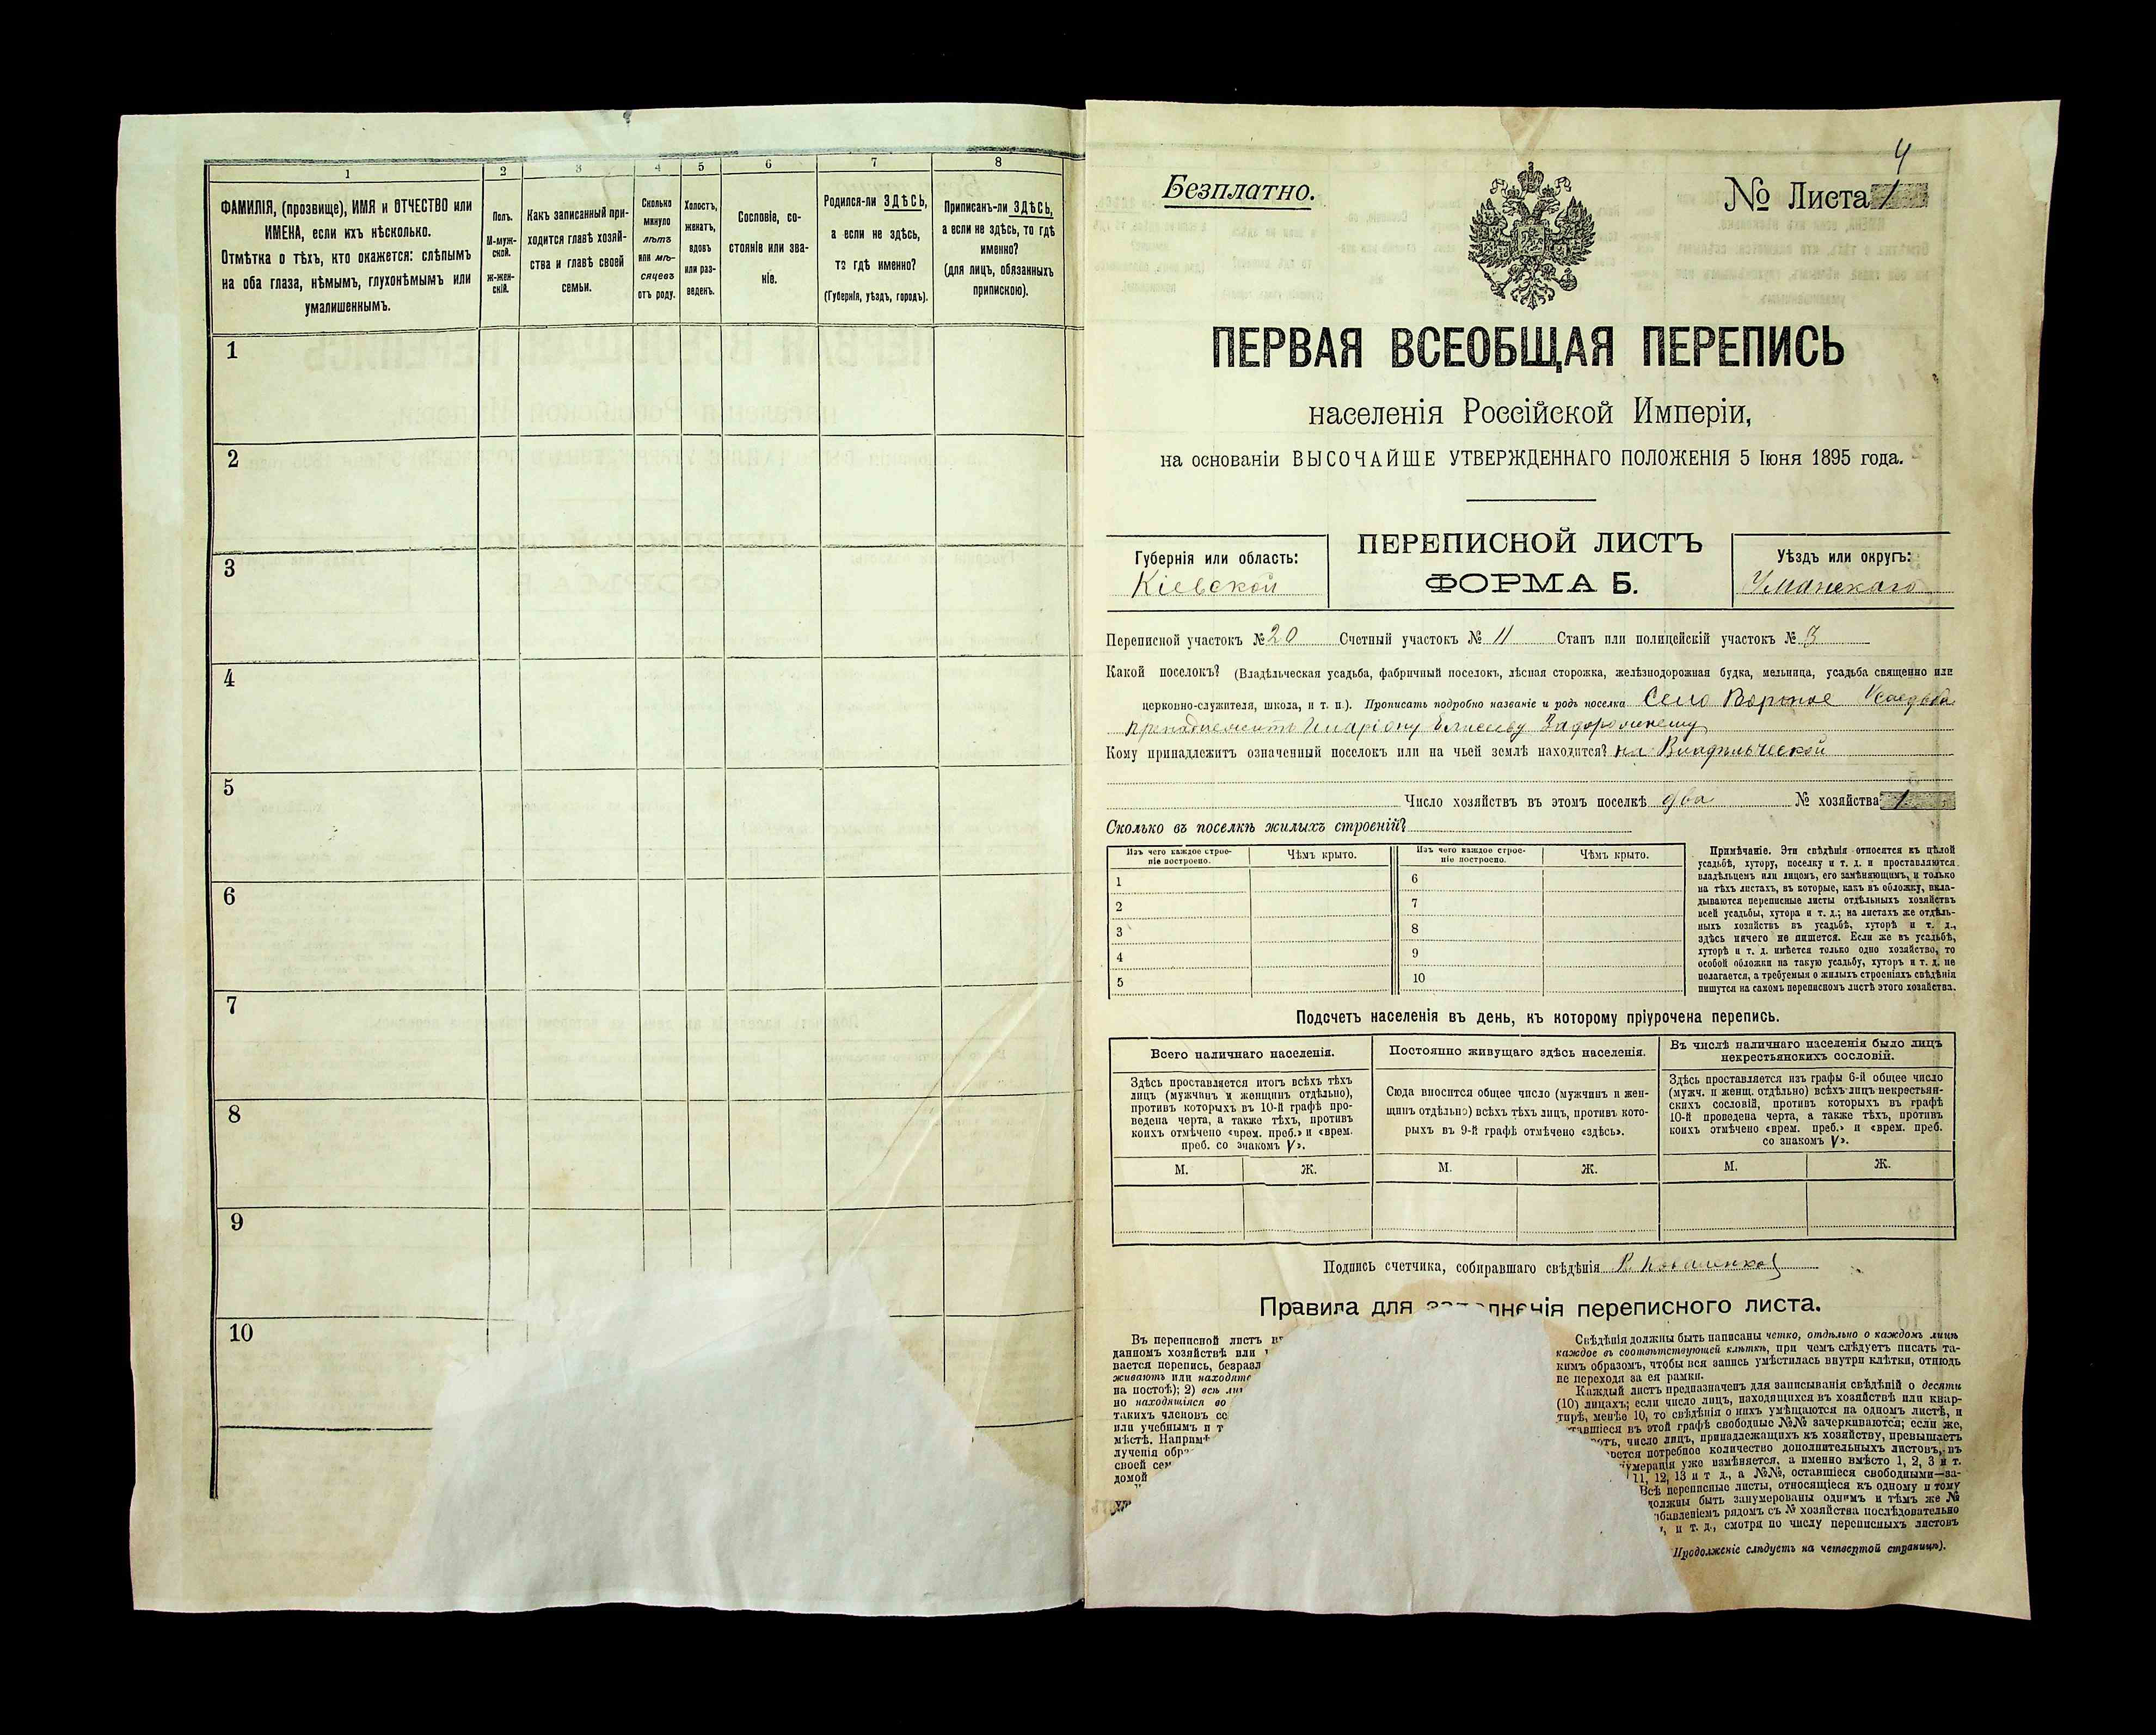 1
2
3
4
5
6
7
8
ФАМИЛІЯ, (прозвище), ИМЯ и ОТЧЕСТВО или
ИМЕНА, если ихъ нѣсколько.
Отмѣтка о тѣхъ, кто окажется: слѣпымъ
на оба глаза, нѣмымъ, глухонѣмымъ или
умалишеннымъ.
Полъ.
М-муж-
ской.
ж-жен-
скій.
Какъ записанный при-
ходится главѣ хозяй-
ства и главѣ своей
семьи.
Сколько
минуло
лѣтъ
или мѣ-
сяцевъ
отъ роду.
Холостъ,
женатъ,
вдовъ
или раз-
веденъ.
Сословіе, со-
стояніе или зва-
ніе.
Родился-ли ЗДѢСЬ,
а если не здѣсь,
то гдѣ именно?
(Губернія, уѣздъ, городъ).
Приписанъ-ли ЗДѢСЬ,
а если не здѣсь, то гдѣ
именно?
(для лицъ, обязанныхъ
припискою).
1
2
3
4
5
6
7
8
9
10
4
Безплатно.
№ Листа 1
ПЕРВАЯ ВСЕОБЩАЯ ПЕРЕПИСЬ
населенія Россійской Имперіи,
на основаніи ВЫСОЧАЙШЕ УТВЕРЖДЕННАГО ПОЛОЖЕНІЯ 5 Іюня 1895 года.
Губернія или область:
Кіевской
ПЕРЕПИСНОЙ ЛИСТЪ
ФОРМА Б.
Уѣздъ или округъ:
Уманскаго
Переписной участокъ № 20 Счетный участокъ № 11 Станъ или полицейскій участокъ № 3
Какой поселокъ? (Владѣльческая усадьба, фабричный поселокъ, лѣсная сторожка, желѣзнодорожная будка, мельница, усадьба священно или
церковно-служителя, школа, и т. п.). Прописать подробно названіе и родъ поселка Село Усадьба
Кому принадлежитъ означенный поселокъ или на чьей землѣ находится? на Владѣльческой
Число хозяйствъ въ этомъ поселкѣ два № хозяйства 1
Сколько въ поселкѣ жилыхъ строеній?
Изъ чего каждое строе-
ніе построено.
Чѣмъ крыто.
Изъ чего каждое строе-
ніе построено.
Чѣмъ крыто.
1
2
3
4
5
6
7
8
9
10
Примѣчаніе. Эти свѣдѣнія относятся къ цѣлой
усадьбѣ, хутору, поселку и т. д. и проставляются
владѣльцемъ или лицомъ, его замѣняющимъ, и только
на тѣхъ листахъ, въ которые, какъ въ обложку, вкла-
дываются переписные листы отдѣльныхъ хозяйствъ
всей усадьбы, хутора и т. д.; на листахъ же отдѣль-
ныхъ хозяйствъ въ усадьбѣ, хуторѣ и т. д.,
здѣсь ничего не пишется. Если же въ усадьбѣ,
хуторѣ и т. д. имѣется только одно хозяйство, то
особой обложки на такую усадьбу, хуторъ и т. д. не
полагается, а требуемыя о жилыхъ строеніяхъ свѣдѣнія
пишутся на самомъ переписномъ листѣ этого хозяйства.
Подсчетъ населенія въ день, къ которому пріурочена перепись.
Всего наличнаго населенія.
Здѣсь проставляется итогъ всѣхъ тѣхъ
лицъ (мужчинъ и женщинъ отдѣльно),
противъ которыхъ въ 10-й графѣ про-
ведена черта, а также тѣхъ, противъ
коихъ отмѣчено «врем. преб.» и «врем.
преб. со знакомъ V».
Постоянно живущаго здѣсь населенія.
Сюда вносится общее число (мужчинъ и жен-
щинъ отдѣльно) всѣхъ тѣхъ лицъ, противъ кото-
рыхъ въ 9-й графѣ отмѣчено «здѣсь».
Въ числѣ наличнаго населенія было лицъ
некрестьянскихъ сословій.
Здѣсь проставляется изъ графы 6-й общее число
(мужч. и женщ. отдѣльно) всѣхъ лицъ некрестьян-
скихъ сословій, противъ которыхъ въ графѣ
10-й проведена черта, а также тѣхъ, противъ
коихъ отмѣчено «врем. преб.» и «врем. преб.
со знакомъ V».
М. Ж. М. Ж. М. Ж.
Подпись счетчика, собиравшаго свѣдѣнія
Правила для переписного листа.
Въ переписной листъ
данномъ хозяйствѣ или
вается перепись,
живаютъ или
на постоѣ); 2) всѣ
но находящіяся во
такихъ членовъ
или учебнымъ и
мѣстѣ.
лученія
своей
домой
Свѣдѣнія должны быть написаны четко, отдѣльно о каждомъ лицѣ
каждое въ соотвѣтствующей клѣткѣ, при чемъ слѣдуетъ писать та-
кимъ образомъ, чтобы вся запись умѣстилась внутри клѣтки, отнюдь
не переходя за ея рамки.
Каждый листъ предназначенъ для записыванія свѣдѣній о десяти
(10) лицахъ; если число лицъ, находящихся въ хозяйствѣ или квар-
тирѣ, менѣе 10, то свѣдѣнія о нихъ умѣщаются на одномъ листѣ, и
въ этой графѣ свободные №№ зачеркиваются; если же,
число лицъ, принадлежащихъ къ хозяйству, превышаетъ
потребное количество дополнительныхъ листовъ, въ
уже измѣняется, а именно вмѣсто 1, 2, 3 и т.
11, 12, 13 и т д., а №№, оставшіеся свободными—за-
Всѣ переписные листы, относящіеся къ одному и тому
должны быть занумерованы однимъ и тѣмъ же №
рядомъ съ № хозяйства послѣдовательно
и т. д., смотря по числу переписныхъ листовъ
Продолженіе слѣдуетъ на четвертой страницѣ).